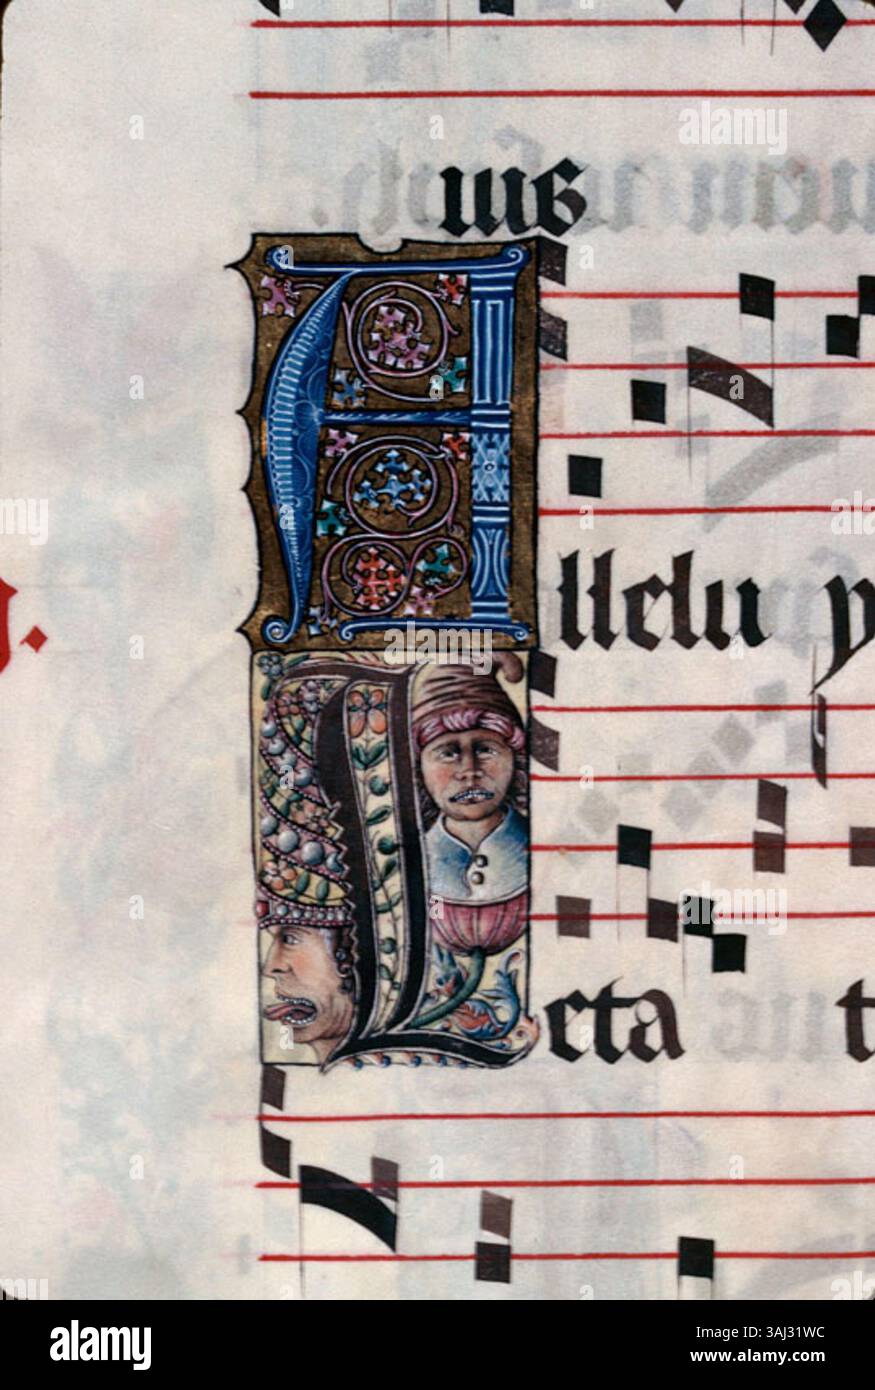 uis
Allelu y
Leta t
alamy
Image ID: 3AJ31WC
www.alamy.com